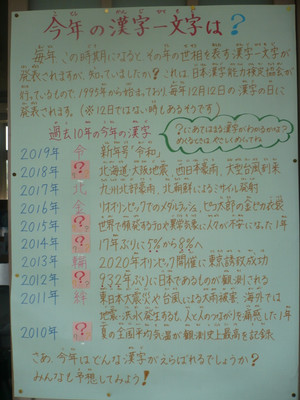 今年の漢字一文字は?
毎年、この時期になると、その年の世相を表す漢字一文字が
発表されますが、知っていましたか?これは、日本漢字能力検定協会が
行っているもので、1995年から始まっており、毎年12月12日の漢字の日に
発表されます。(※12日ではない時もあるそうです)
過去10年の今年の漢字
?にあてはまる漢字がわかるかな?
めくるとは やさしくめくってね
2019年 令 新年号「令和」
2018年 ? 北海道・大阪地震、西日本豪雨、大型台風到来
2017年 北 九州北部豪雨、北朝鮮によるミサイル発射
2016年 金 リオオリンピックでのメダルラッシュ、ピコ太郎の金ピカ衣装
2015年 ? 世界で頻発するテロや異常気象に人々が不安になった1年
2014年 ? 17年ぶりに5%から8%へ
2013年 輪 2020年オリンピック開催に東京誘致成功
2012年 ? 932年ぶりに日本であるものが観測される
2011年 絆 東日本大震災や台風による大雨被害、海外では
地震・洪水発生するも人と人のつながりを痛感した1年
2010年 ? 夏の全国平均気温が観測史上最高を記録
さぁ、今年はどんな漢字がえらばれるでしょうか?
みんなも予想してみよう!